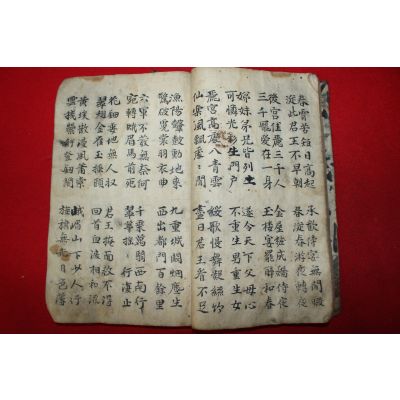 春宵苦短日高起
從此君王不早朝
承歡侍宴無間暇
春從春游夜專夜
後宮佳麗三千人
三千寵愛在一身
金屋粧成嬌侍夜
玉樓宴罷醉和春
姊妹弟兄皆列土
可憐光彩生門戶
遂令天下父母心
不重生男重生女
驪宮高處入青雲
仙樂風飄處處聞
緩歌慢舞凝絲竹
盡日君王看不足
漁陽鼙鼓動地來
驚破霓裳羽衣曲
九重城闕烟塵生
西出都門百餘里
六軍不發無奈何
宛轉蛾眉馬前死
千乘萬騎西南行
翠華搖搖行復止
花鈿委地無人收
翠翹金雀玉搔頭
君王掩面救不得
回首血淚相和流
黃埃散漫風蕭索
雲棧縈紆登劍閣
峨嵋山下少人行
旌旗無光日色薄